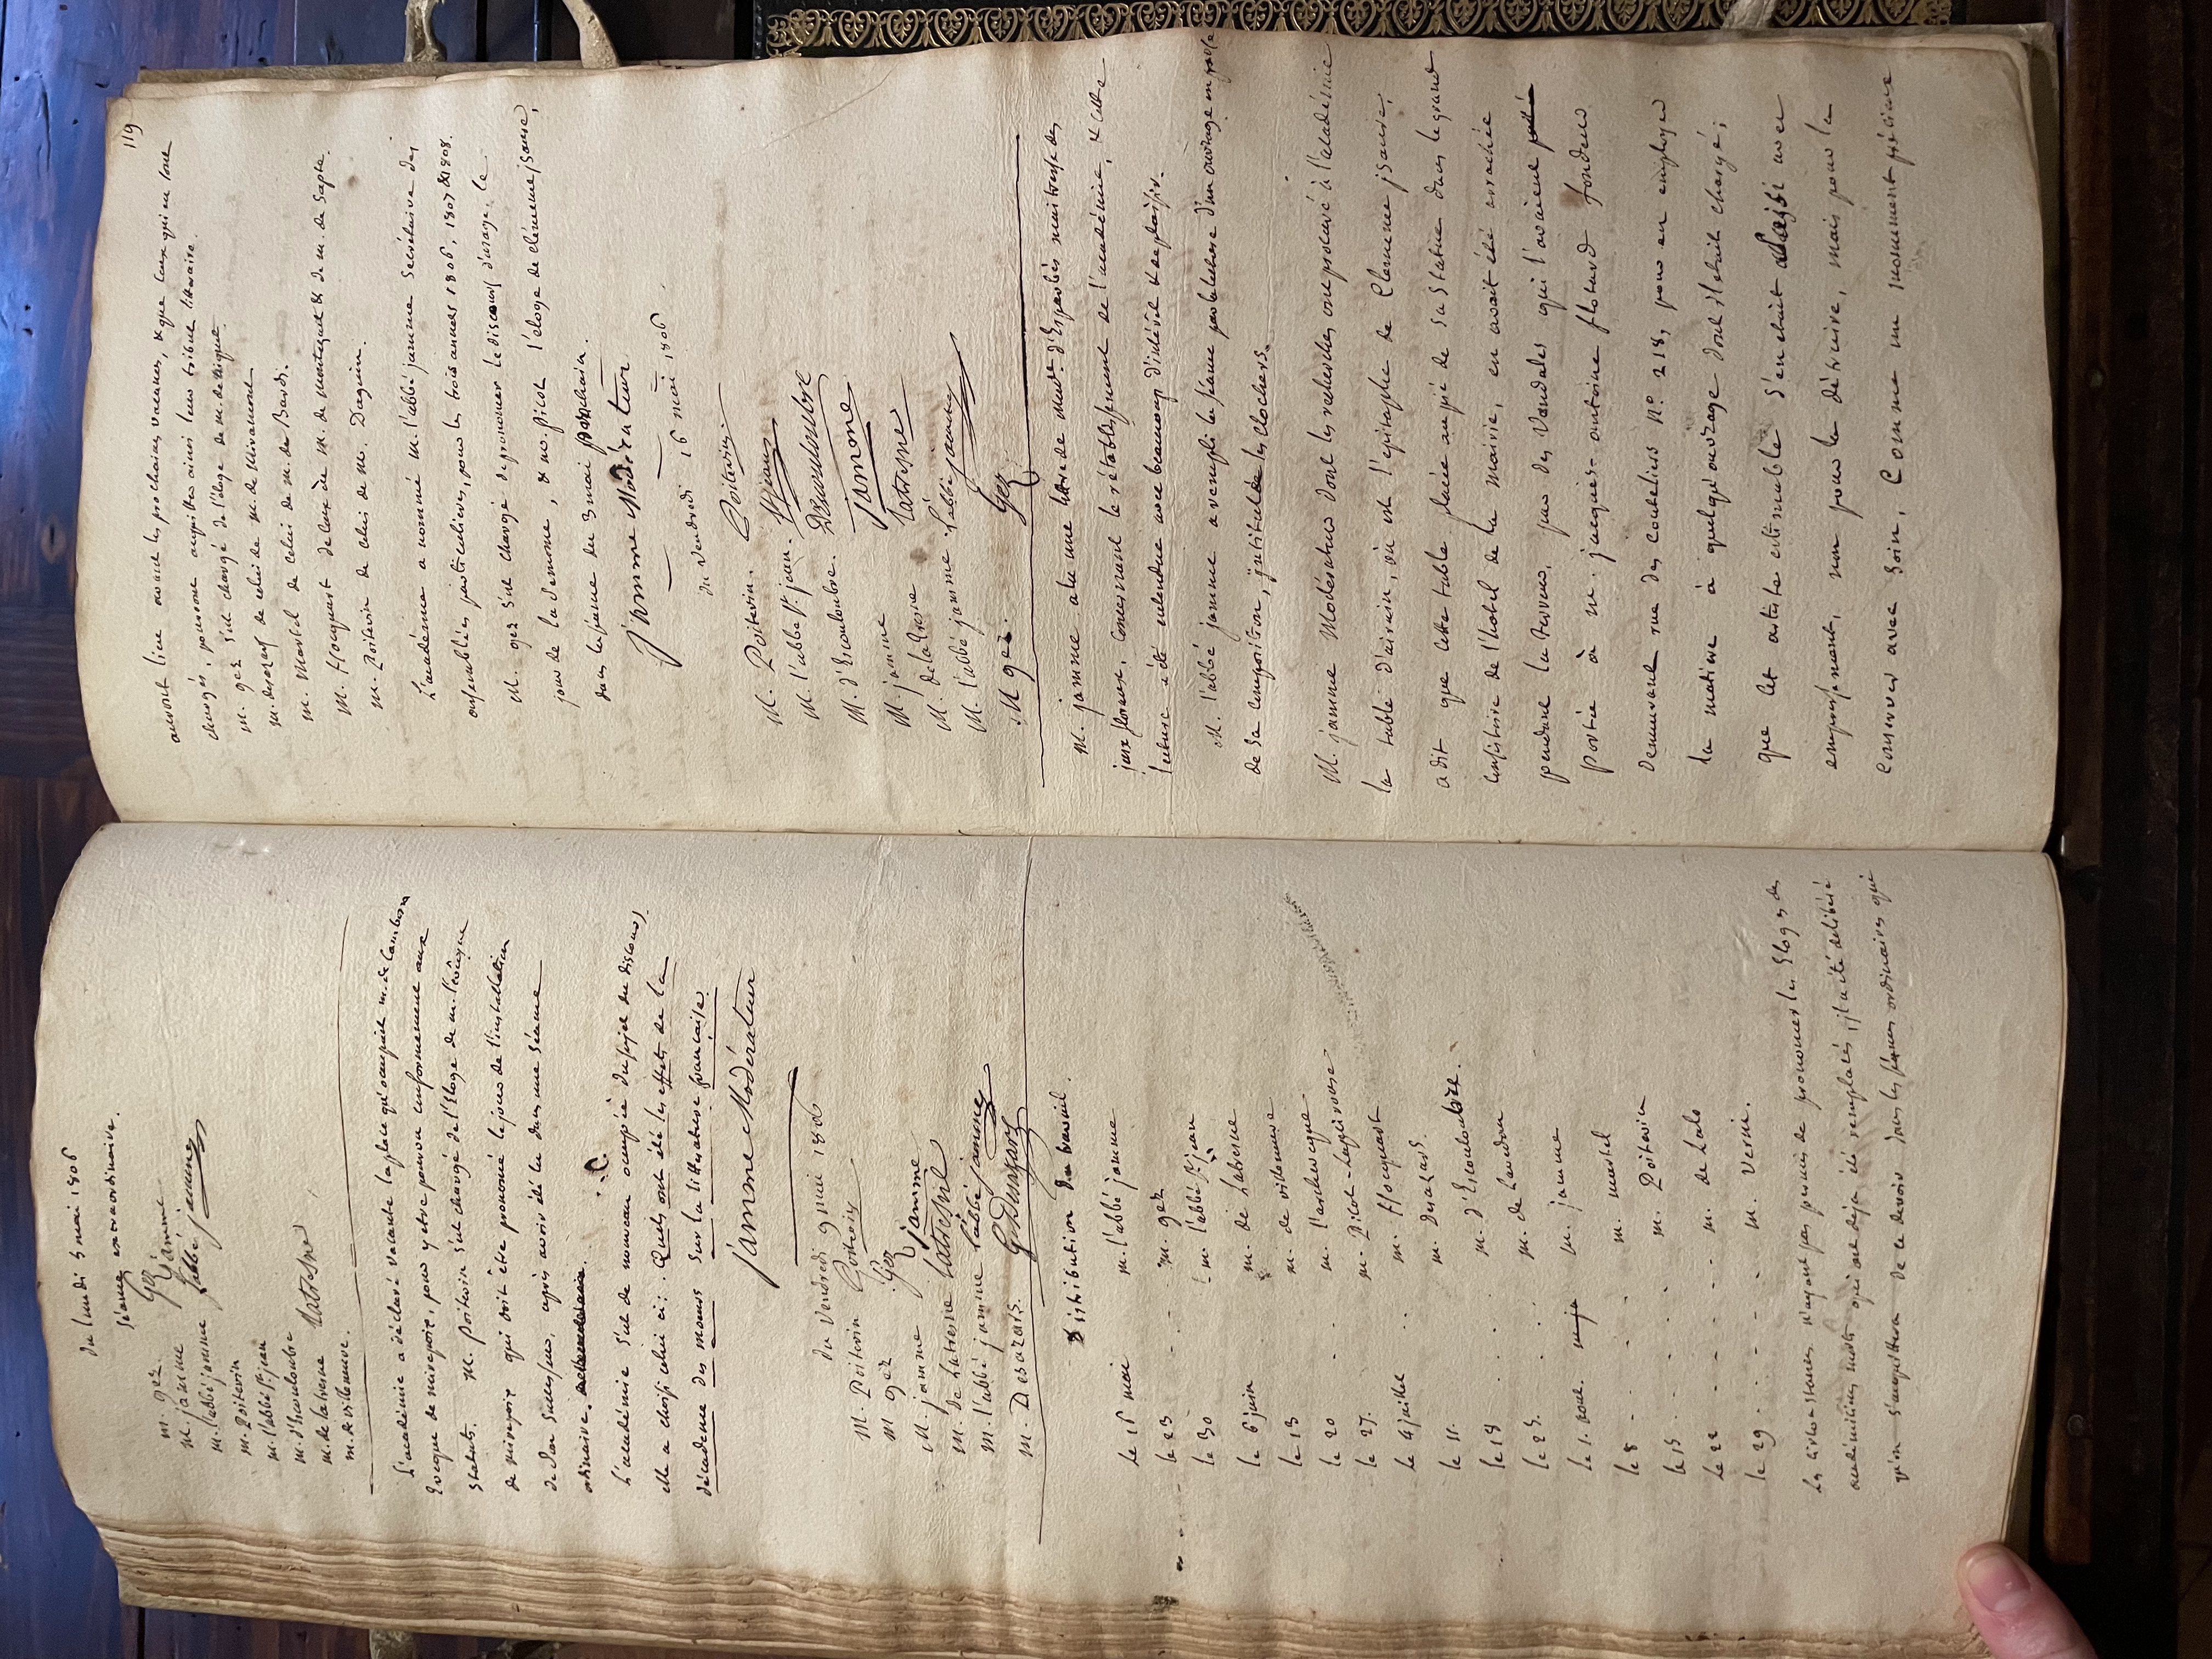 du lundi 5 mai 1806
séance extraordinaire.
m. gez. Gez
m. jamme Jamme
m. l'abbé jamme l'abbé jamme
m. Poitevin
m. l'abbé St. jean
m. d'Escouloubre
m. de latresne Latresne
m. de villeneuve.
L'académie a déclaré vacante la place qu'occupait m. de Cambon
Evêque de mirepoix, pour y etre pourvu conformement aux
Statuts. M. Poitevin s'est chargé de l'Eloge de m. l'évêque
de mirepoix qui doit être prononcé le jour de l'installation
de son successeur, après avoir été lu dans une séance
ordinaire.
L'académie s'est de nouveau occupée du sujet du discours,
elle a choisi celui ci: Quels ont été les effets de la
décadence des moeurs sur la littérature française.
jamme Modérateur
du Vendredi 9 mai 1806
M. Poitevin Poitevin
M gez Gez
M. jamme jamme
M. de Latresne Latresne
M. l'abbé jamme l'abbé jamme
M. Desazars. G Desazars
Distribution du travail.
Le 16 mai m. l'abbé jamme
Le 23 m. gez
Le 30 m. l'abbé St. jean
Le 6 juin m. de Latresne
Le 13 m. de villeneuve
Le 20 m. l'archevêque
Le 27. m. Picot-Lapeirouse
Le 4 juillet m. floquart
Le 11. m. Desazars.
Le 18 m. d'Escouloubre.
Le 25. m. de Lavedan
Le 1. aout. m. jamme
Le 8 m. martel
Le 15 m. Poitevin
Le 22 m. de Lalo
Le 29 m. Verni.
Les circonstances n'ayant pas permis de prononcer les Eloges des
académiciens morts qui ont déja été remplacés, il a été délibéré
qu'on s'acquitteroit de ce devoir dans les séances ordinaires qui
119
auront lieu avant les prochaines vacances, & que ceux qui en sont
chargés, pourront acquitter ainsi leur tribut littéraire.
M. gez s'est chargé de l'éloge de M. de Reganhac
M. desazars de celui de M. de Miramont
M. Martel de celui de M. de Bardi.
M. floquart de ceux de M. de montegut & de m. de Sapte.
M. Poitevin de celui de M. Daguin.
L'académie a nommé M. l'abbé jamme Secrétaire des
assemblées particulieres, pour les trois années 1806, 1807 & 1808.
M. gez s'est chargé de prononcer le discours d'usage, le
jour de la semonce, & m. Picot l'éloge de clémence isaure,
dans la séance du 3 mai prochain.
jamme Modérateur
du Vendredi 16 mai 1806
M. Poitevin. Poitevin
M. l'abbé St. jean. St jean
M. d'Escouloubre. Descouloubre
M. jamme jamme
M. de latresne Latresne
M. l'abbé jamme l'abbé jamme
M. gez. Gez
M. jamme a lu une lettre de made. d'Esparbès maitresse des
jeux floraux, concernant le rétablissement de l'académie, & cette
lecture a été entendue avec beaucoup d'intérêt & de plaisir.
M. l'abbé jamme a rempli la séance par la lecture d'un ouvrage en prose
de sa composition, intitulé les clochers.
M. jamme Modérateur dont les recherches ont procuré à l'académie
la table d'airain, où est l'épitaphe de Clemence isaure,
a dit que cette table placée au pié de sa statue dans le grand
consistoire de l'hotel de la mairie, en avait été arrachée
pendant la terreur, par des Vandales qui l'avaient
portée à m. jacques-antoine flotard fondeur
demeurant rue des couteliers N°. 218, pour en employer
la matière à quelqu'ouvrage dont il étoit chargé;
que cet artiste estimable s'en était saisi avec
empressement, non pour la détruire, mais pour la
conserver avec soin, comme un monument précieux